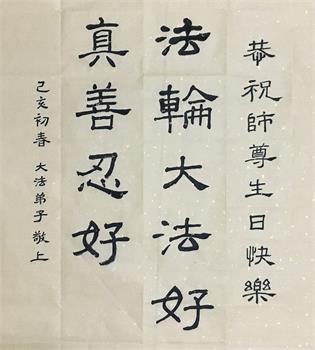 恭祝師尊生日快樂
法輪大法好
真善忍好
己亥初春 大法弟子敬上